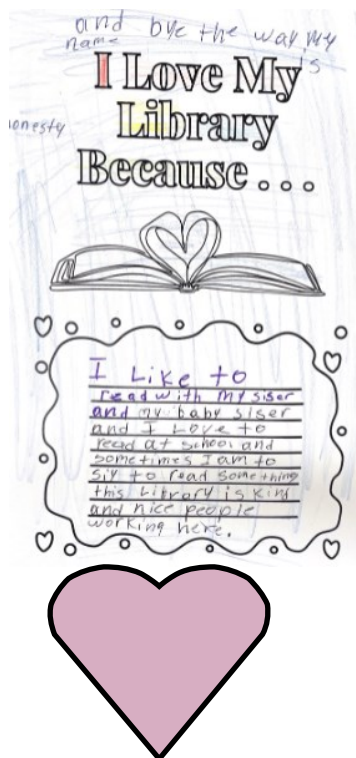 and bye the way my
name is
I Love My
onesty
Library
Because...
I Like to
read with my siser
and my baby siser
and I Love to
read at school and
sometimes I am to
siy to read something
this Library is kind
and nice people
working here.